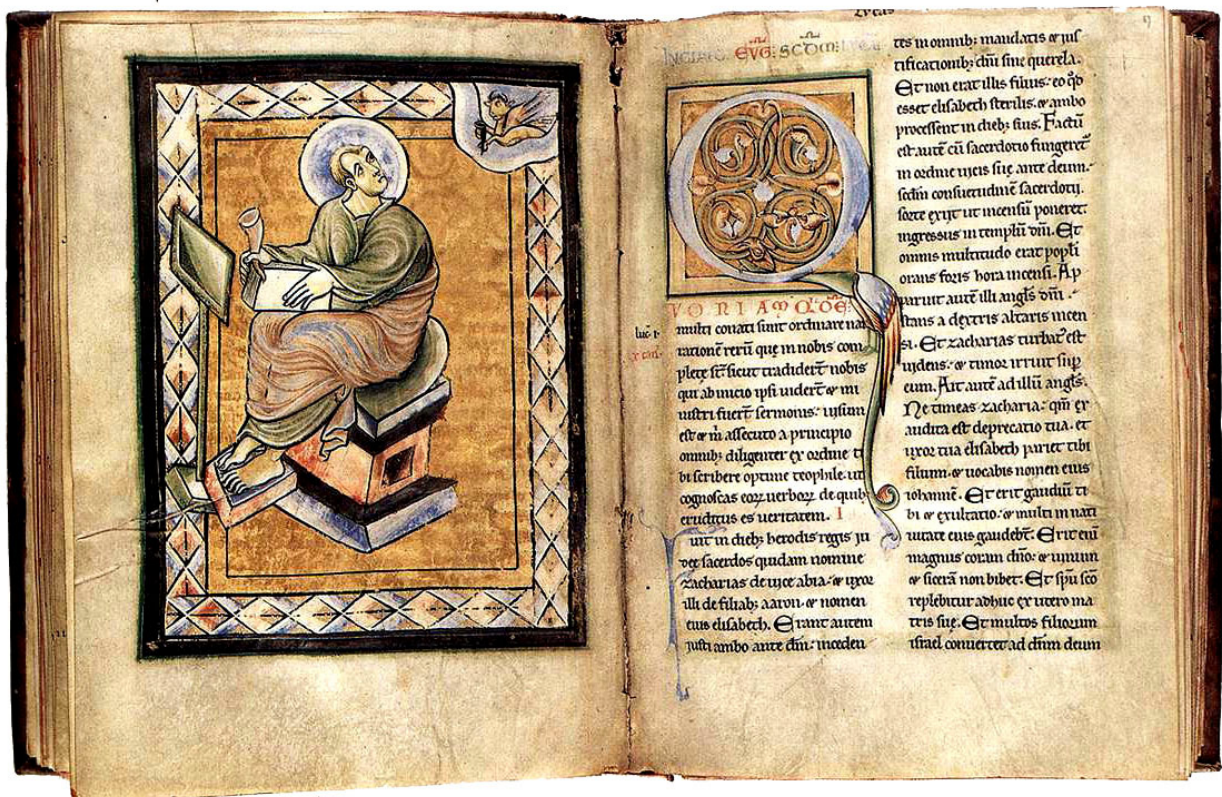 INCIPIT EVG SCDM
QVONIAM QVIDE
luc. i.
multi conati sunt ordinare nar
rationē rerū que in nobis com
plete st̄ sicut tradider̄t nobis
qui ab inicio ipsi vider̄t & mi
nistri fuer̄t sermonis: visum
est & m̄ assecuto a principio
omnib; diligenter ex ordine ti
bi scribere optime teophile. ut
cognoscas eoꝝ verboꝝ de quib;
eruditus es veritatem.
Fuit in dieb; herodis regis iu
dee sacerdos quidam nomine
zacharias de vice abia. & uxor
illi de filiab; aaron. & nomen
eius elisabeth. Erant autem
iusti ambo ante dm̄. inceden
tes in omnib; mandatis & ius
tificationib; dn̄i sine querela.
Et non erat illis filius. eo qd̄
esset elisabeth sterilis. & ambo
processent in dieb; suis. Factū
est autē cū sacerdotio fungeret̄
in ordine vicis sue ante deum.
scdm̄ consuetudinē sacerdotij.
sorte exijt ut incensū poneret.
ingressus in templū dn̄i. Et
omnis multitudo erat popli
orans foris hora incensi. Ap
paruit autē illi angls̄ dn̄i.
stans a dextris altaris incen
si. Et zacharias turbat̄ est
videns. & timor irruit sup̄
eum. Ait autē ad illū angls̄.
Ne timeas zacharia. qm̄ ex
audita est deprecatio tua. et
uxor tua elisabeth pariet tibi
filium. & vocabis nomen eius
iohannē. Et erit gaudiū ti
bi & exultatio. & multi in nati
vitate eius gaudebt̄. Erit eni
magnus coram dn̄o. & vinum
& sicerā non bibet. Et spū sc̄o
replebitur adhuc ex utero ma
tris sue. Et multos filiorum
israel convertet ad dn̄m deum